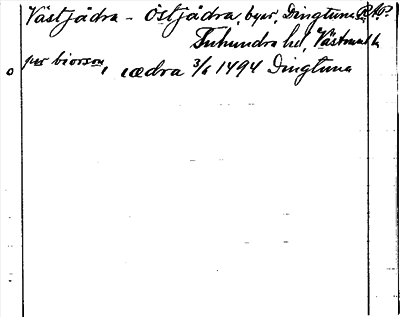 Västjädra - Östjädra, byar, Dingtuna
Tuhundra hd, Västmanl
per biorson, iædra 3/6 1494 Dingtuna